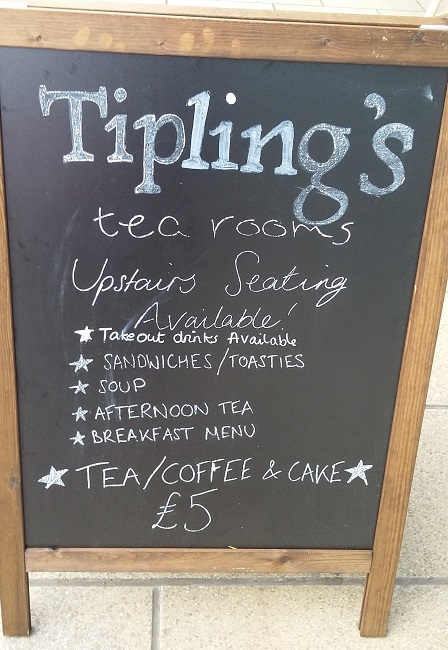 Tipling's
tea rooms
Upstairs Seating
Available!
★ Takeout drinks Available
★ SANDWICHES/TOASTIES
★ SOUP
★ AFTERNOON TEA
★ BREAKFAST MENU
★ TEA/COFFEE & CAKE ★
£5